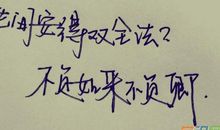 间安得双全法？
不负如来不负卿.